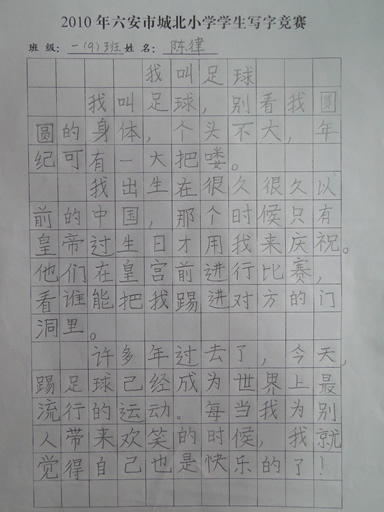 2010年六安市城北小学学生写字竞赛
班级：一(9)班姓名：陈律
我叫足球
我叫足球，别看我圆
圆的身体，个头不大，年
纪可有一大把喽。
我出生在很久很久以
前的中国，那个时候只有
皇帝过生日才用我来庆祝。
他们在皇宫前进行比赛，
看谁能把我踢进对方的门
洞里。
许多年过去了，今天，
踢足球已经成为世界上最
流行的运动。每当我为别
人带来欢笑的时候，我就
觉得自己也是快乐的了！